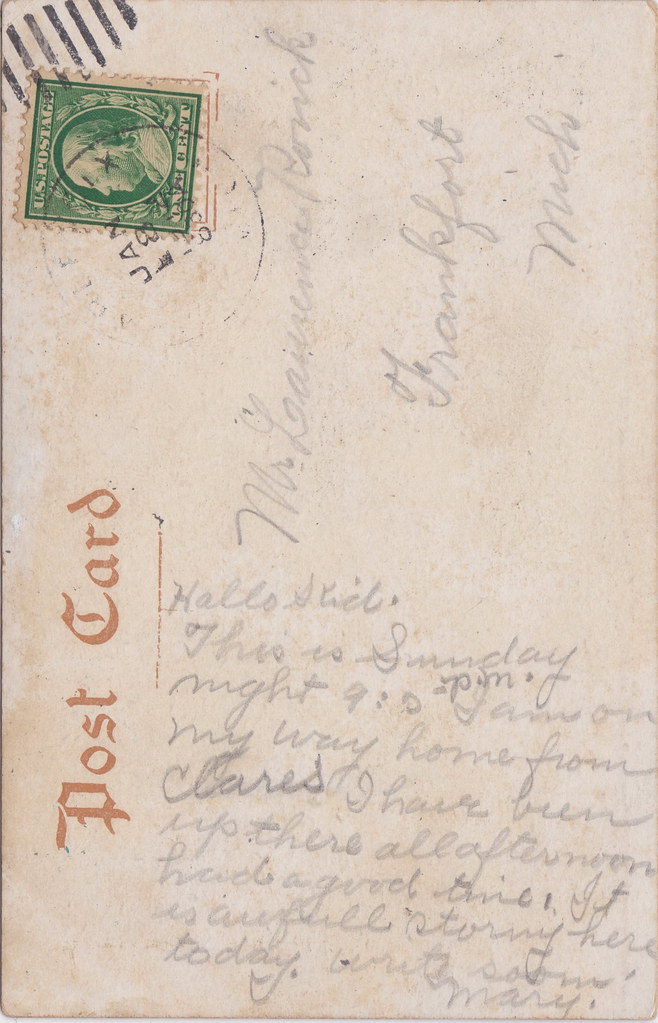 Post Card
U.S. POSTAGE
ONE CENT
JAN
Mr Lawrence
Frankfort
Mich
Hallo Skid.
This is Sunday
night 9: p.m. I am on
my way home from
Clares I have been
up there all afternoon
had a good time. It
is awfull stormy here
today. write soon.
Mary.